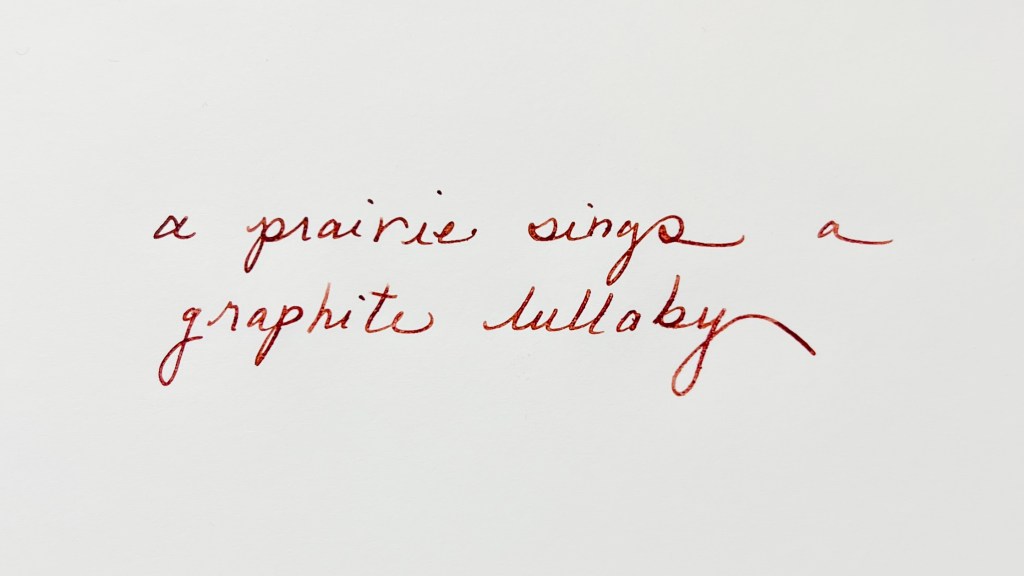 a prairie sings a
graphite lullaby